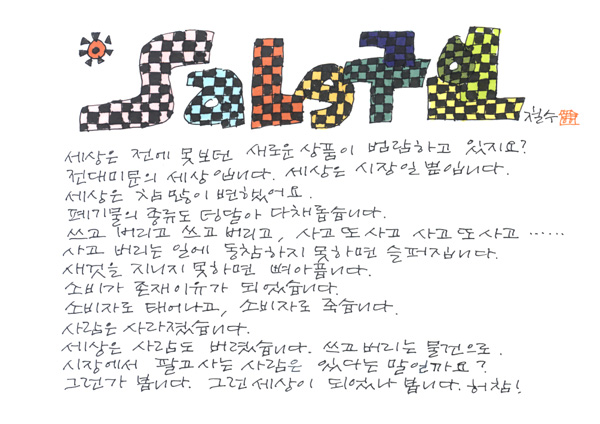 Sale
철수
세상은 전에 못보던 새로운 상품이 범람하고 있지요?
전대미문의 세상입니다. 세상은 시장일 뿐입니다.
세상은 참 많이 변했어요.
폐기물의 종류도 덩달아 다채롭습니다.
쓰고 버리고 쓰고 버리고, 사고 또 사고 사고 또 사고 ……
사고 버리는 일에 동참하지 못하면 슬퍼집니다.
새것을 지니지 못하면 뼈아픕니다.
소비가 존재이유가 되었습니다.
소비자로 태어나고, 소비자로 죽습니다.
사람은 사라졌습니다.
세상은 사람도 버렸습니다. 쓰고 버리는 물건으로.
시장에서 팔고 사는 사람은 있다는 말일까요?
그런가 봅니다. 그런 세상이 되었나 봅니다. 허참!